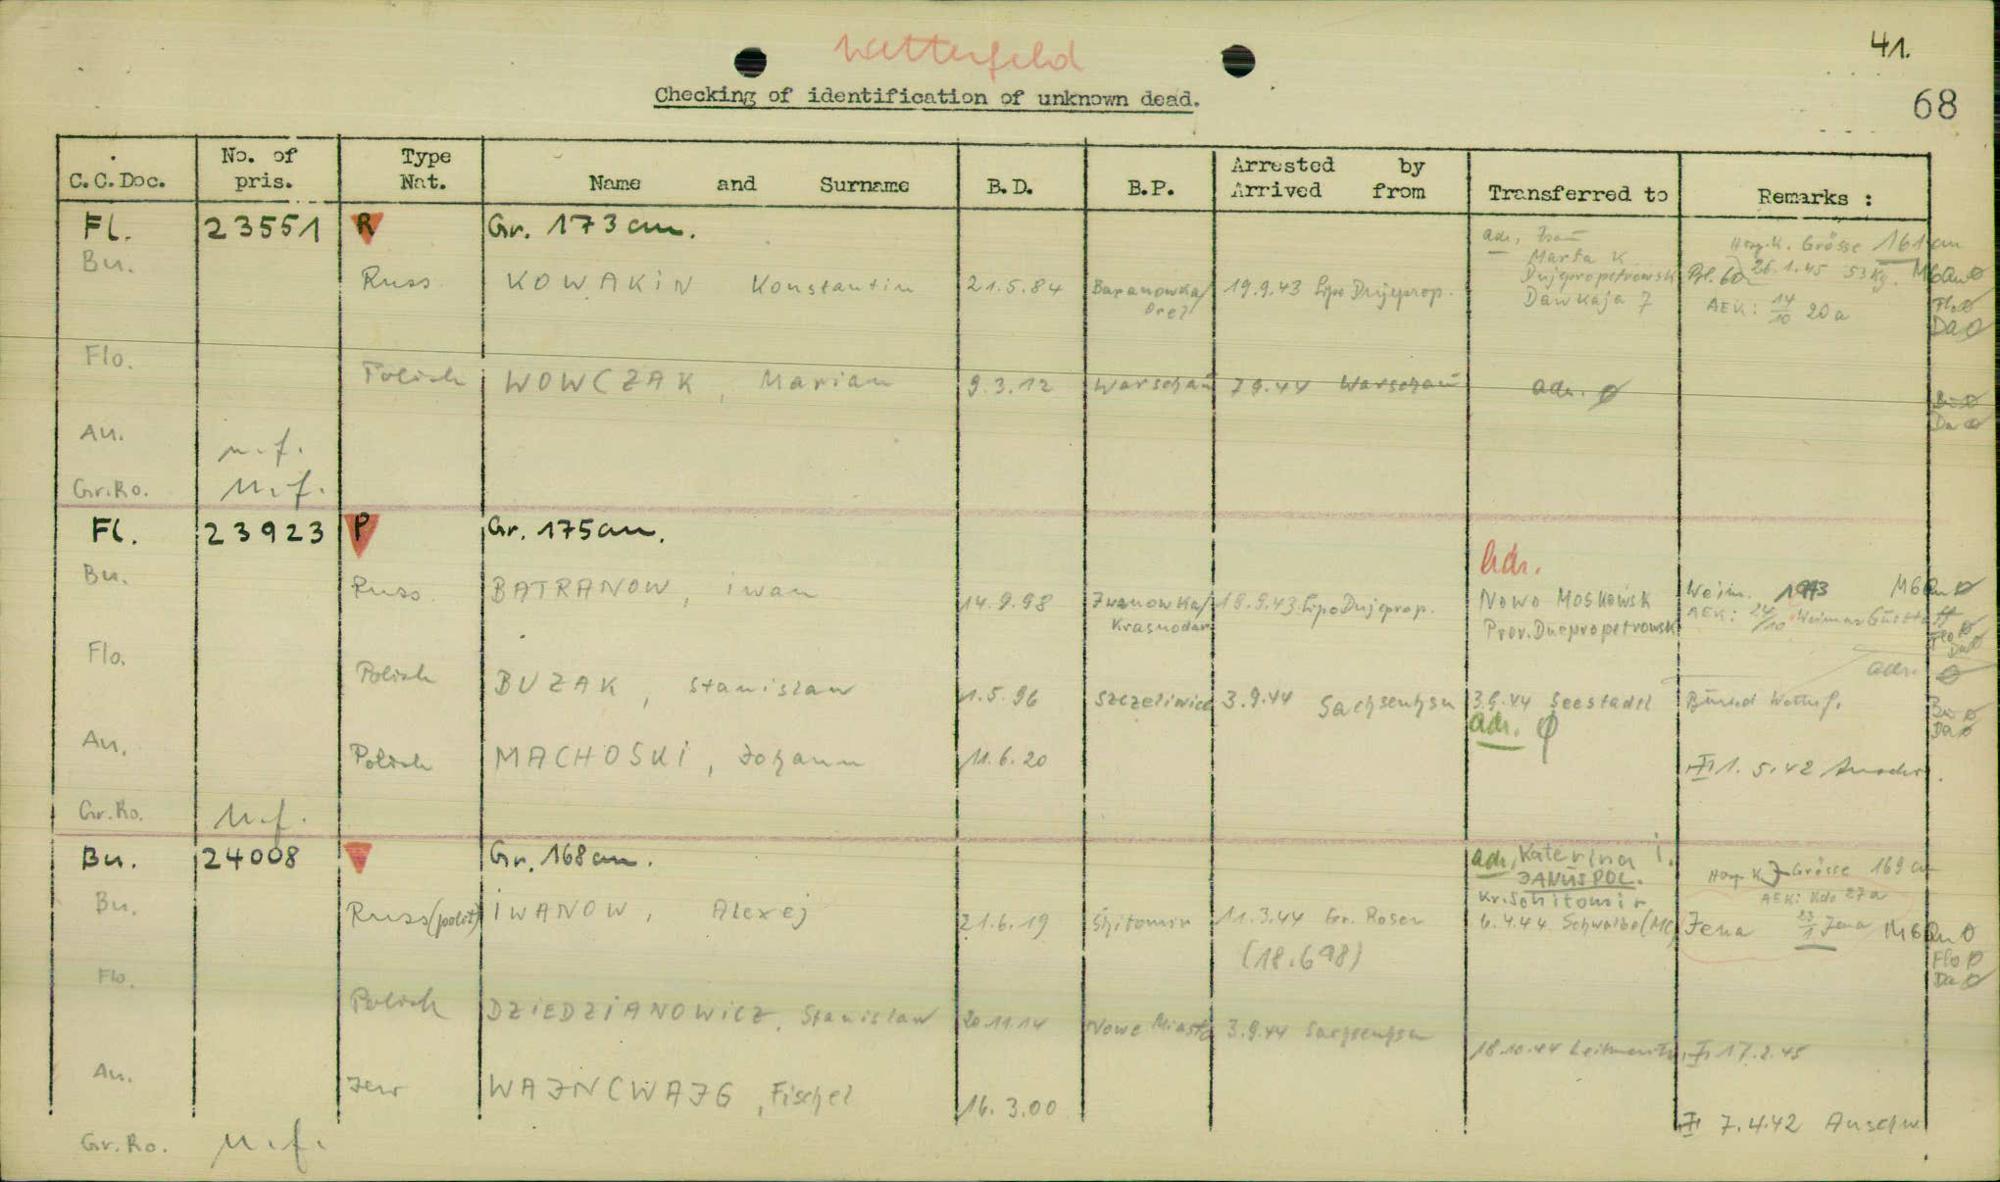 41.
Wetterfeld
Checking of identification of unknown dead.
68
C.C.Doc. No. of pris. Type Nat. Name and Surname B.D. B.P. Arrested by Arrived from Transferred to Remarks :
Fl. 23551 R Gr. 173 cm. adr. Marta K Grösse 161 cm
Bu. Russ KOWAKIN Konstantin 21.5.84 Baranowka/ Orel 19.9.43 Dnjeprop. Dnjepropetrowsk Dawkaja 7 26.1.45 53 Kg.
AEK: 14/10 20a Flo Ø
Da Ø
Flo. Polish WOWCZAK, Marian 9.3.12 Warschau 7.9.44 Warschau adr. Ø
Bu Ø
Da Ø
Au. n.f.
Gr.Ro. n.f.
Fl. 23923 P Gr. 175 cm.
Adr.
Bu. Russ. BATRANOW, iwan 14.9.98 Krasnodar 18.9.43 Dnjeprop. Nowo Moskowsk Weim. 1943
Prov. Dnepropetrowsk AEK: 24/10 Weimar
Flo Ø
Da Ø
adr. Ø
Flo. Polish BUZAK, Stanislaw 1.5.96 3.9.44 Sachsenhsn 3.9.44 Seestadtl
adr. Ø
Bu Ø
Da Ø
Au. Polish MACHOSKI, Johann 11.6.20 1.5.42
Gr.Ro. n.f.
Bu. 24008 Gr. 168 cm. adr. Katerina i. Grösse 169 cm
JANUSPOL.
Kr. Schitomir AEK: Kdo 27a
Bu. Russ (polit) IWANOW, Alexej 21.6.19 Shitomir 11.3.44 Gr. Rosen 6.4.44 Schwalbe Jena 23/1 Jena
(18.698) Flo Ø
Da Ø
Flo. Polish DZIEDZIANOWICZ, Stanislaw 20.11.14 Nowe Miasto 3.9.44 Sachsenhsn 18.10.44 Leitmeritz, 17.2.45
Au. Jew WAJNCWAJG, Fischel 16.3.00 7.4.42 Auschw
Gr.Ro. n.f.